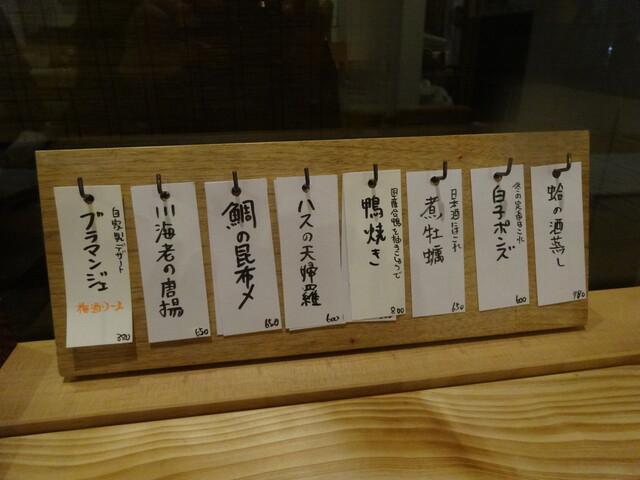 蛤の酒蒸し
980
冬の定番はこれ
白子ポンズ
600
日本酒にはこれ
煮牡蠣
650
国産合鴨を柚きこしょうで
鴨焼き
800
ハスの天婦羅
600
鯛の昆布〆
650
川海老の唐揚
650
自家製デザート
ブラマンジェ
梅酒ソース
380